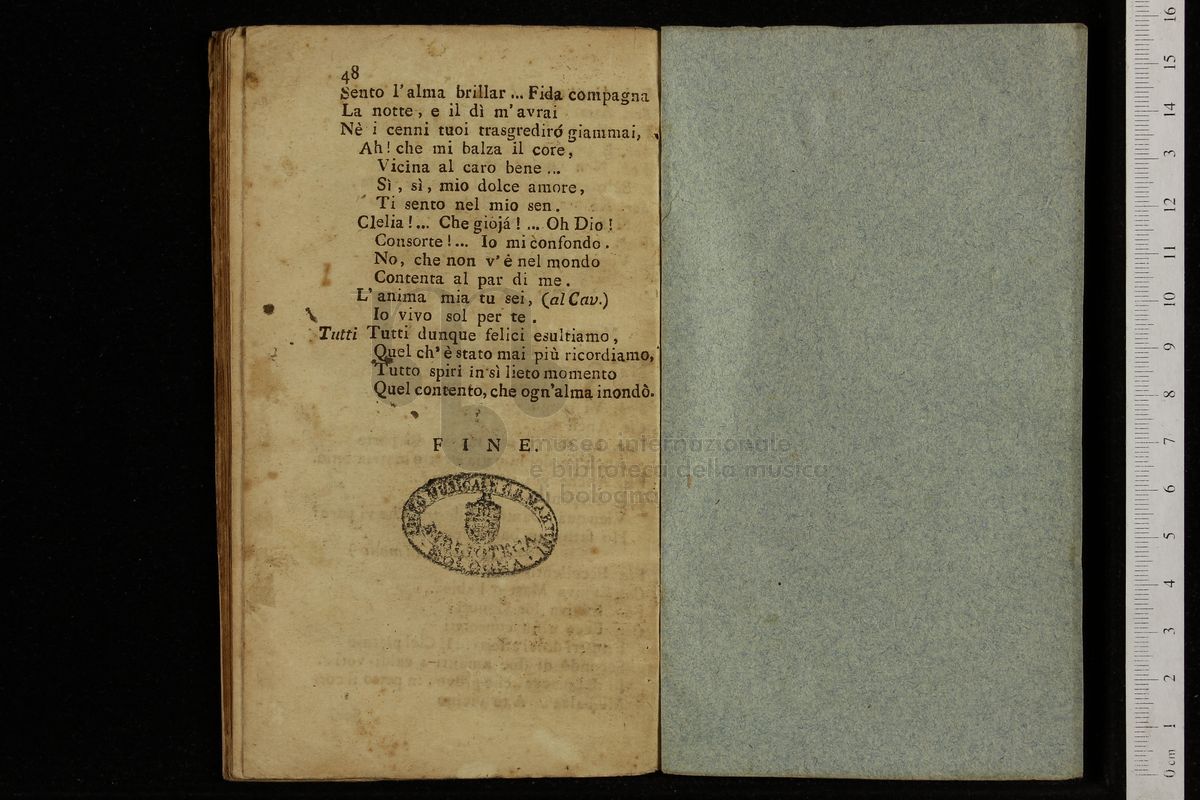 48
Sento l'alma brillar ... Fida compagna
La notte, e il dì m'avrai
Nè i cenni tuoi trasgrediró giammai,
Ah! che mi balza il core,
Vicina al caro bene ...
Sì, sì, mio dolce amore,
Ti sento nel mio sen.
Clelia!... Che giojá! ... Oh Dio!
Consorte!... Io mi confondo.
No, che non v'é nel mondo
Contenta al par di me.
L'anima mia tu sei, (al Cav.)
Io vivo sol per te.
Tutti Tutti dunque felici esultiamo,
Quel ch'è stato mai più ricordiamo,
Tutto spiri in sì lieto momento
Quel contento, che ogn'alma inondò.
FINE.
museo internazionale
e biblioteca della musica
di bologna
LICEO MUSICALE G.B. MARTINI
BIBLIOTECA
BOLOGNA
0 cm 1 2 3 4 5 6 7 8 9 10 11 12 13 14 15 16